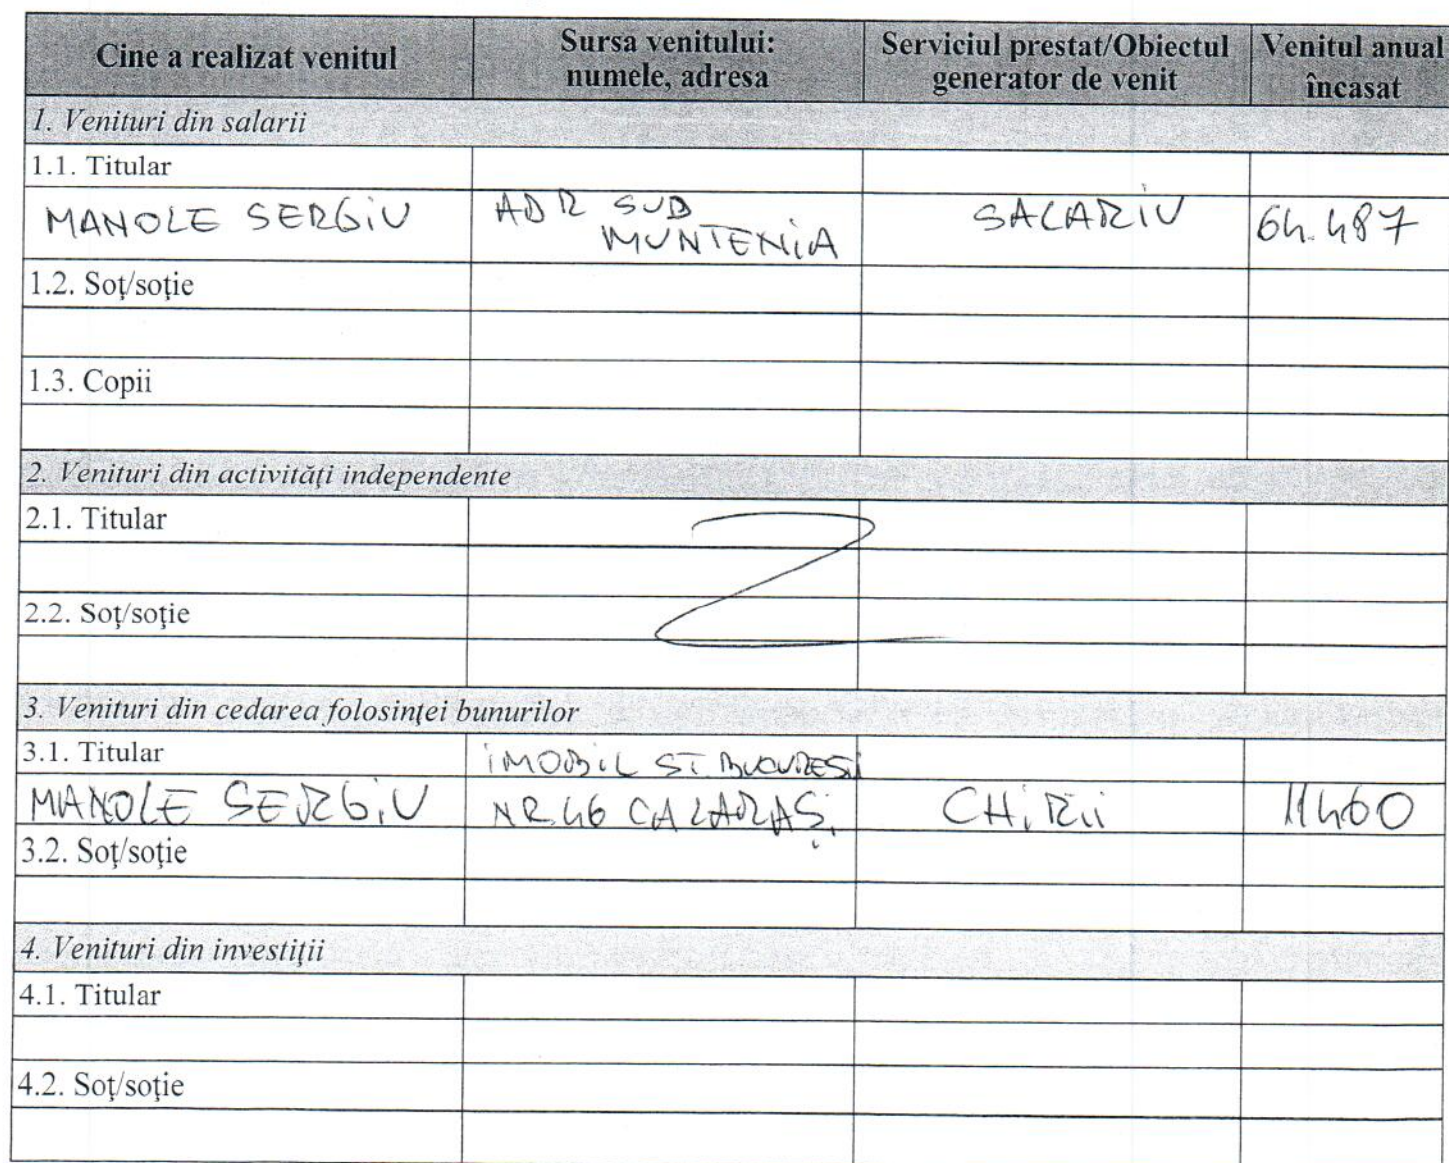 Cine a realizat venitul
Sursa venitului:
numele, adresa
Serviciul prestat/Obiectul
generator de venit
Venitul anual
încasat
1. Venituri din salarii
1.1. Titular
MANOLE SERGiU
ADR SUD
MUNTENiA
SALARiU
64.487
1.2. Soţ/soţie
1.3. Copii
2. Venituri din activităţi independente
2.1. Titular
2.2. Soţ/soţie
3. Venituri din cedarea folosinţei bunurilor
3.1. Titular
iMOBiL ST. BUCUREST
MANOLE SERGiU
NR 46 CALARAŞi
CHiRii
11460
3.2. Soţ/soţie
4. Venituri din investiţii
4.1. Titular
4.2. Soţ/soţie